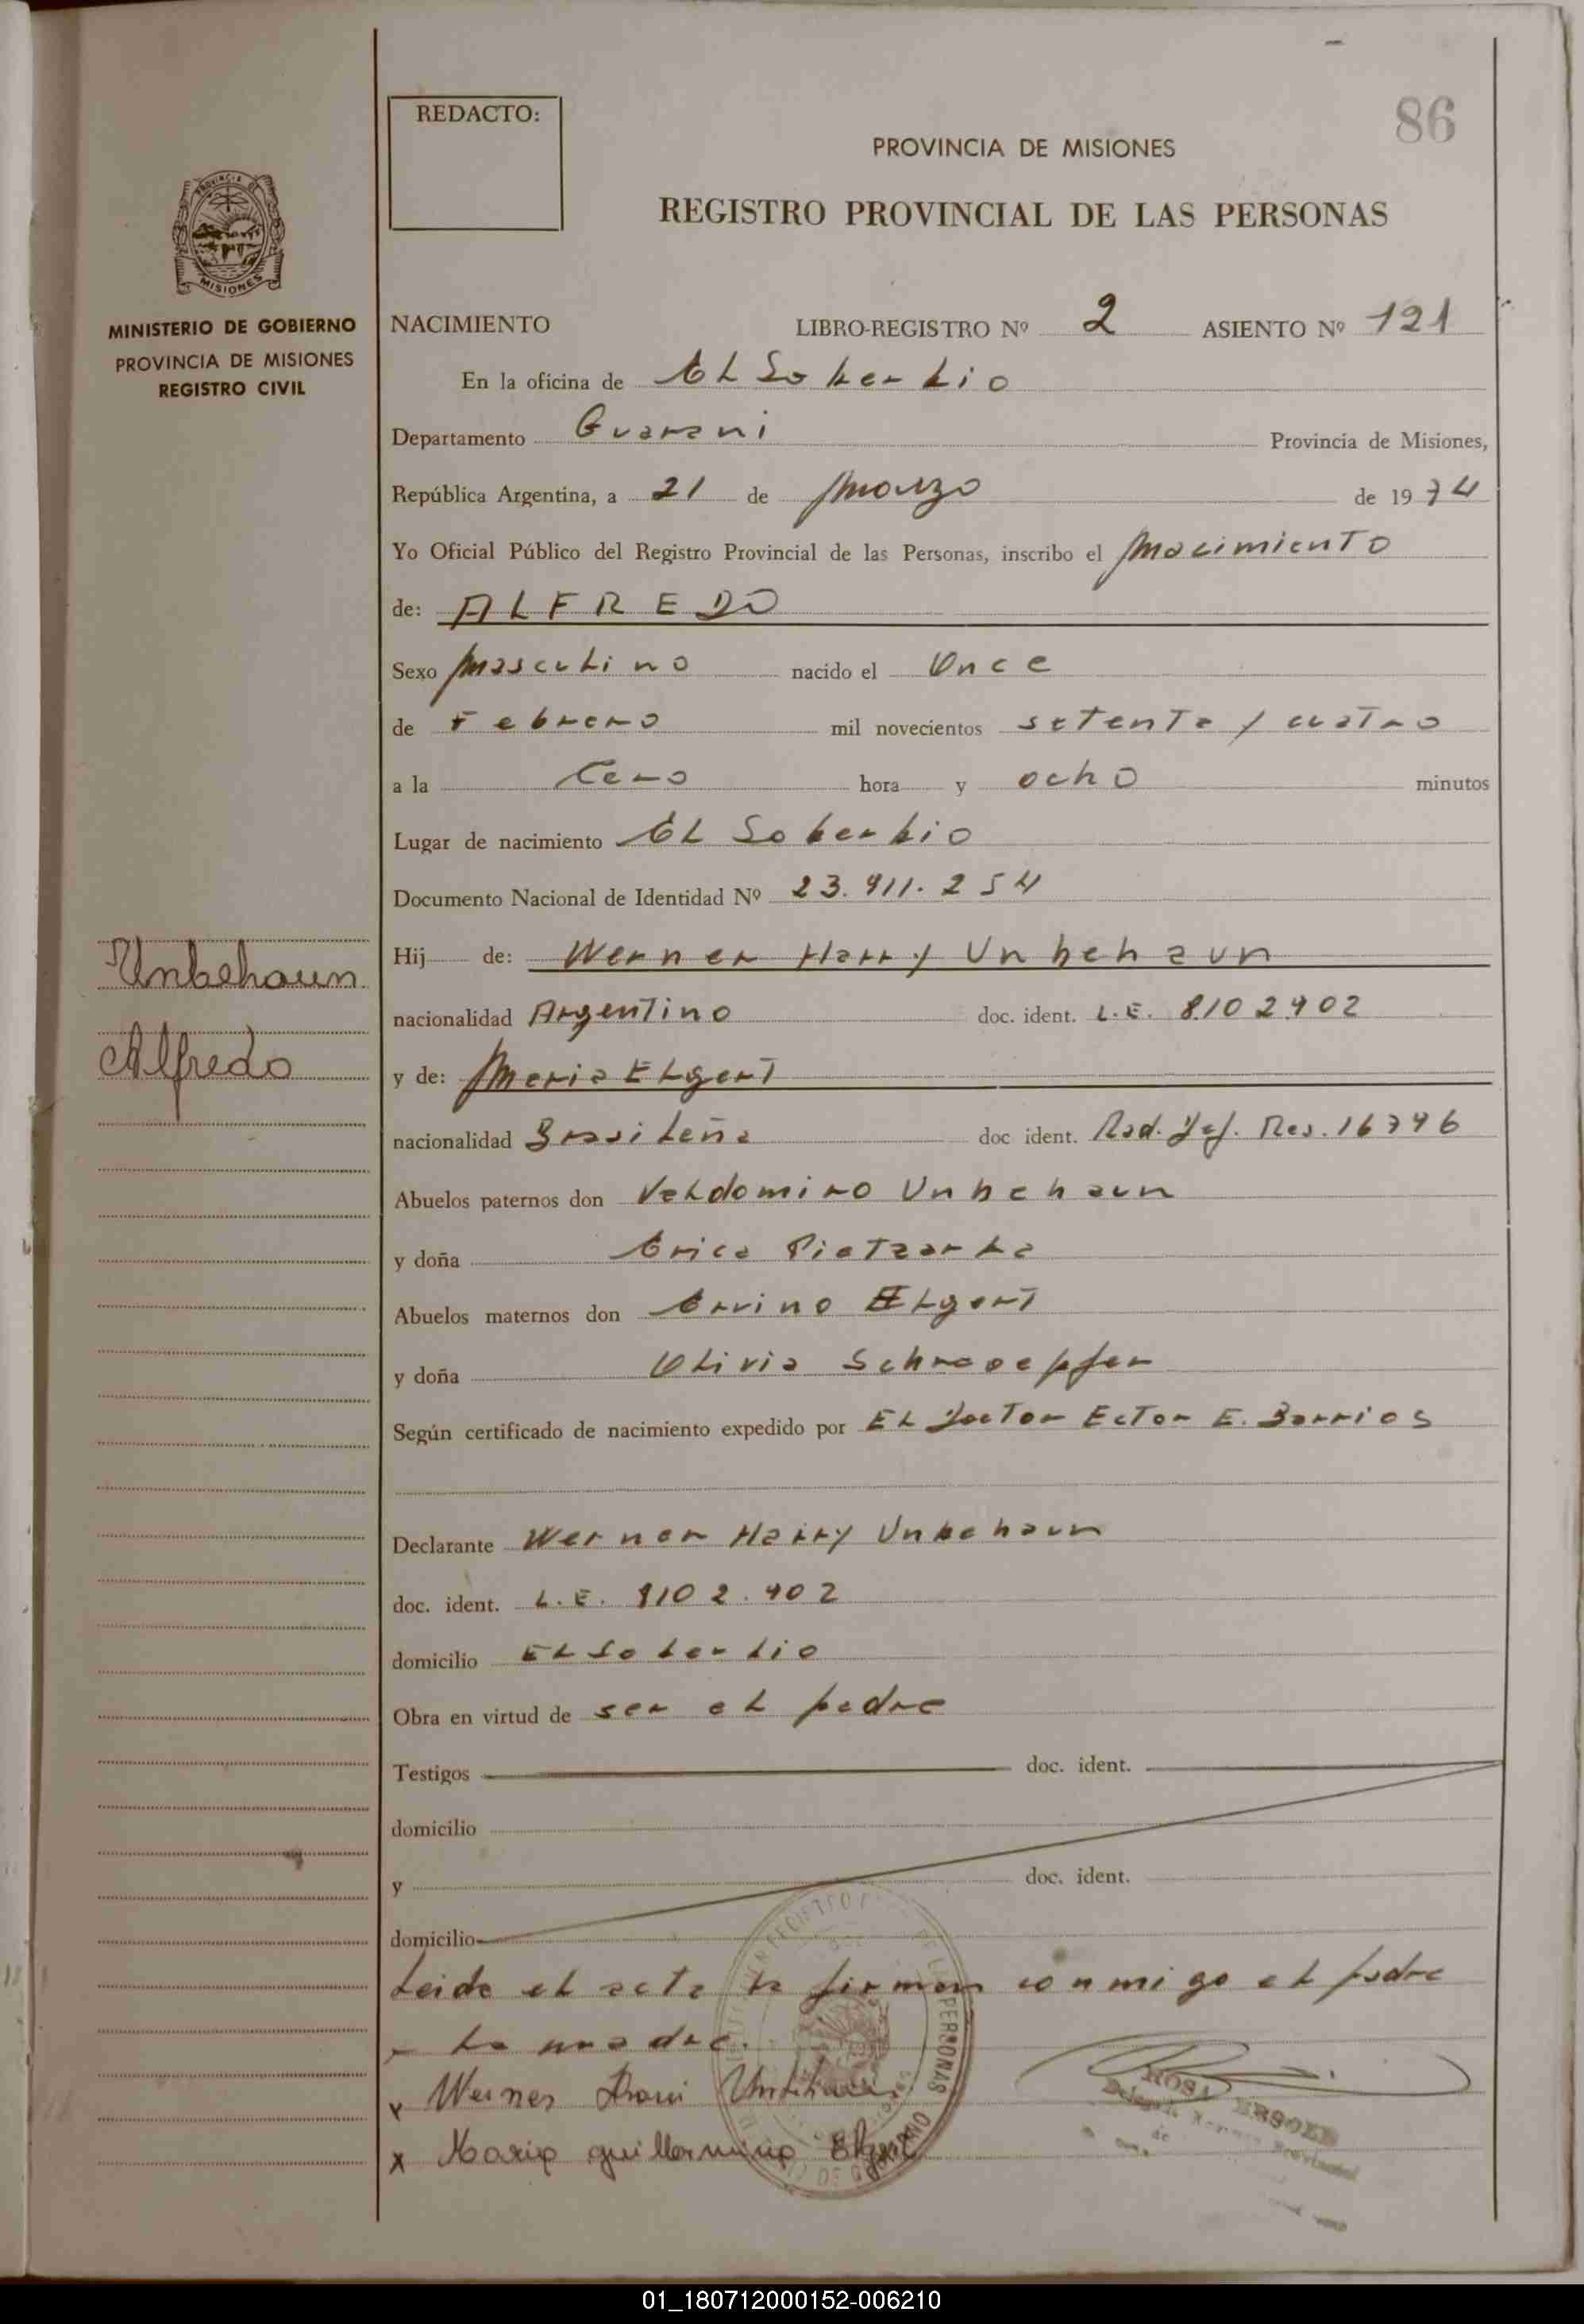 86
REDACTO:
PROVINCIA DE MISIONES
REGISTRO PROVINCIAL DE LAS PERSONAS
PROVINCIA DE
MISIONES
MINISTERIO DE GOBIERNO
PROVINCIA DE MISIONES
REGISTRO CIVIL
NACIMIENTO LIBRO-REGISTRO Nº 2 ASIENTO Nº 121
En la oficina de El Soberbio
Departamento Guarani Provincia de Misiones,
República Argentina, a 21 de Marzo de 1974
Yo Oficial Público del Registro Provincial de las Personas, inscribo el Nacimiento
de: ALFREDO
Sexo Masculino nacido el Once
de Febrero mil novecientos setenta y cuatro
a la Cero hora y ocho minutos
Lugar de nacimiento El Soberbio
Documento Nacional de Identidad Nº 23.911.254
Unbehaun
Alfredo
Hij de: Werner Harry Unbehaun
nacionalidad Argentino doc. ident. L.E. 8.102.902
y de: Maria Elgert
nacionalidad Brasileña doc ident. Rad. Def. Res. 16796
Abuelos paternos don Valdomiro Unbehaun
y doña Erica
Abuelos maternos don Ervino Elgert
y doña Olivia Schroepfer
Según certificado de nacimiento expedido por El Doctor Ector E. Barrios
Declarante Werner Harry Unbehaun
doc. ident. L.E. 8102.902
domicilio El Soberbio
Obra en virtud de ser el padre
Testigos doc. ident.
domicilio
y doc. ident.
domicilio
Leida el acta la firman conmigo el padre
y la madre.
x Werner
x Maria guillermina Elgert
PERSONAS
01_180712000152-006210